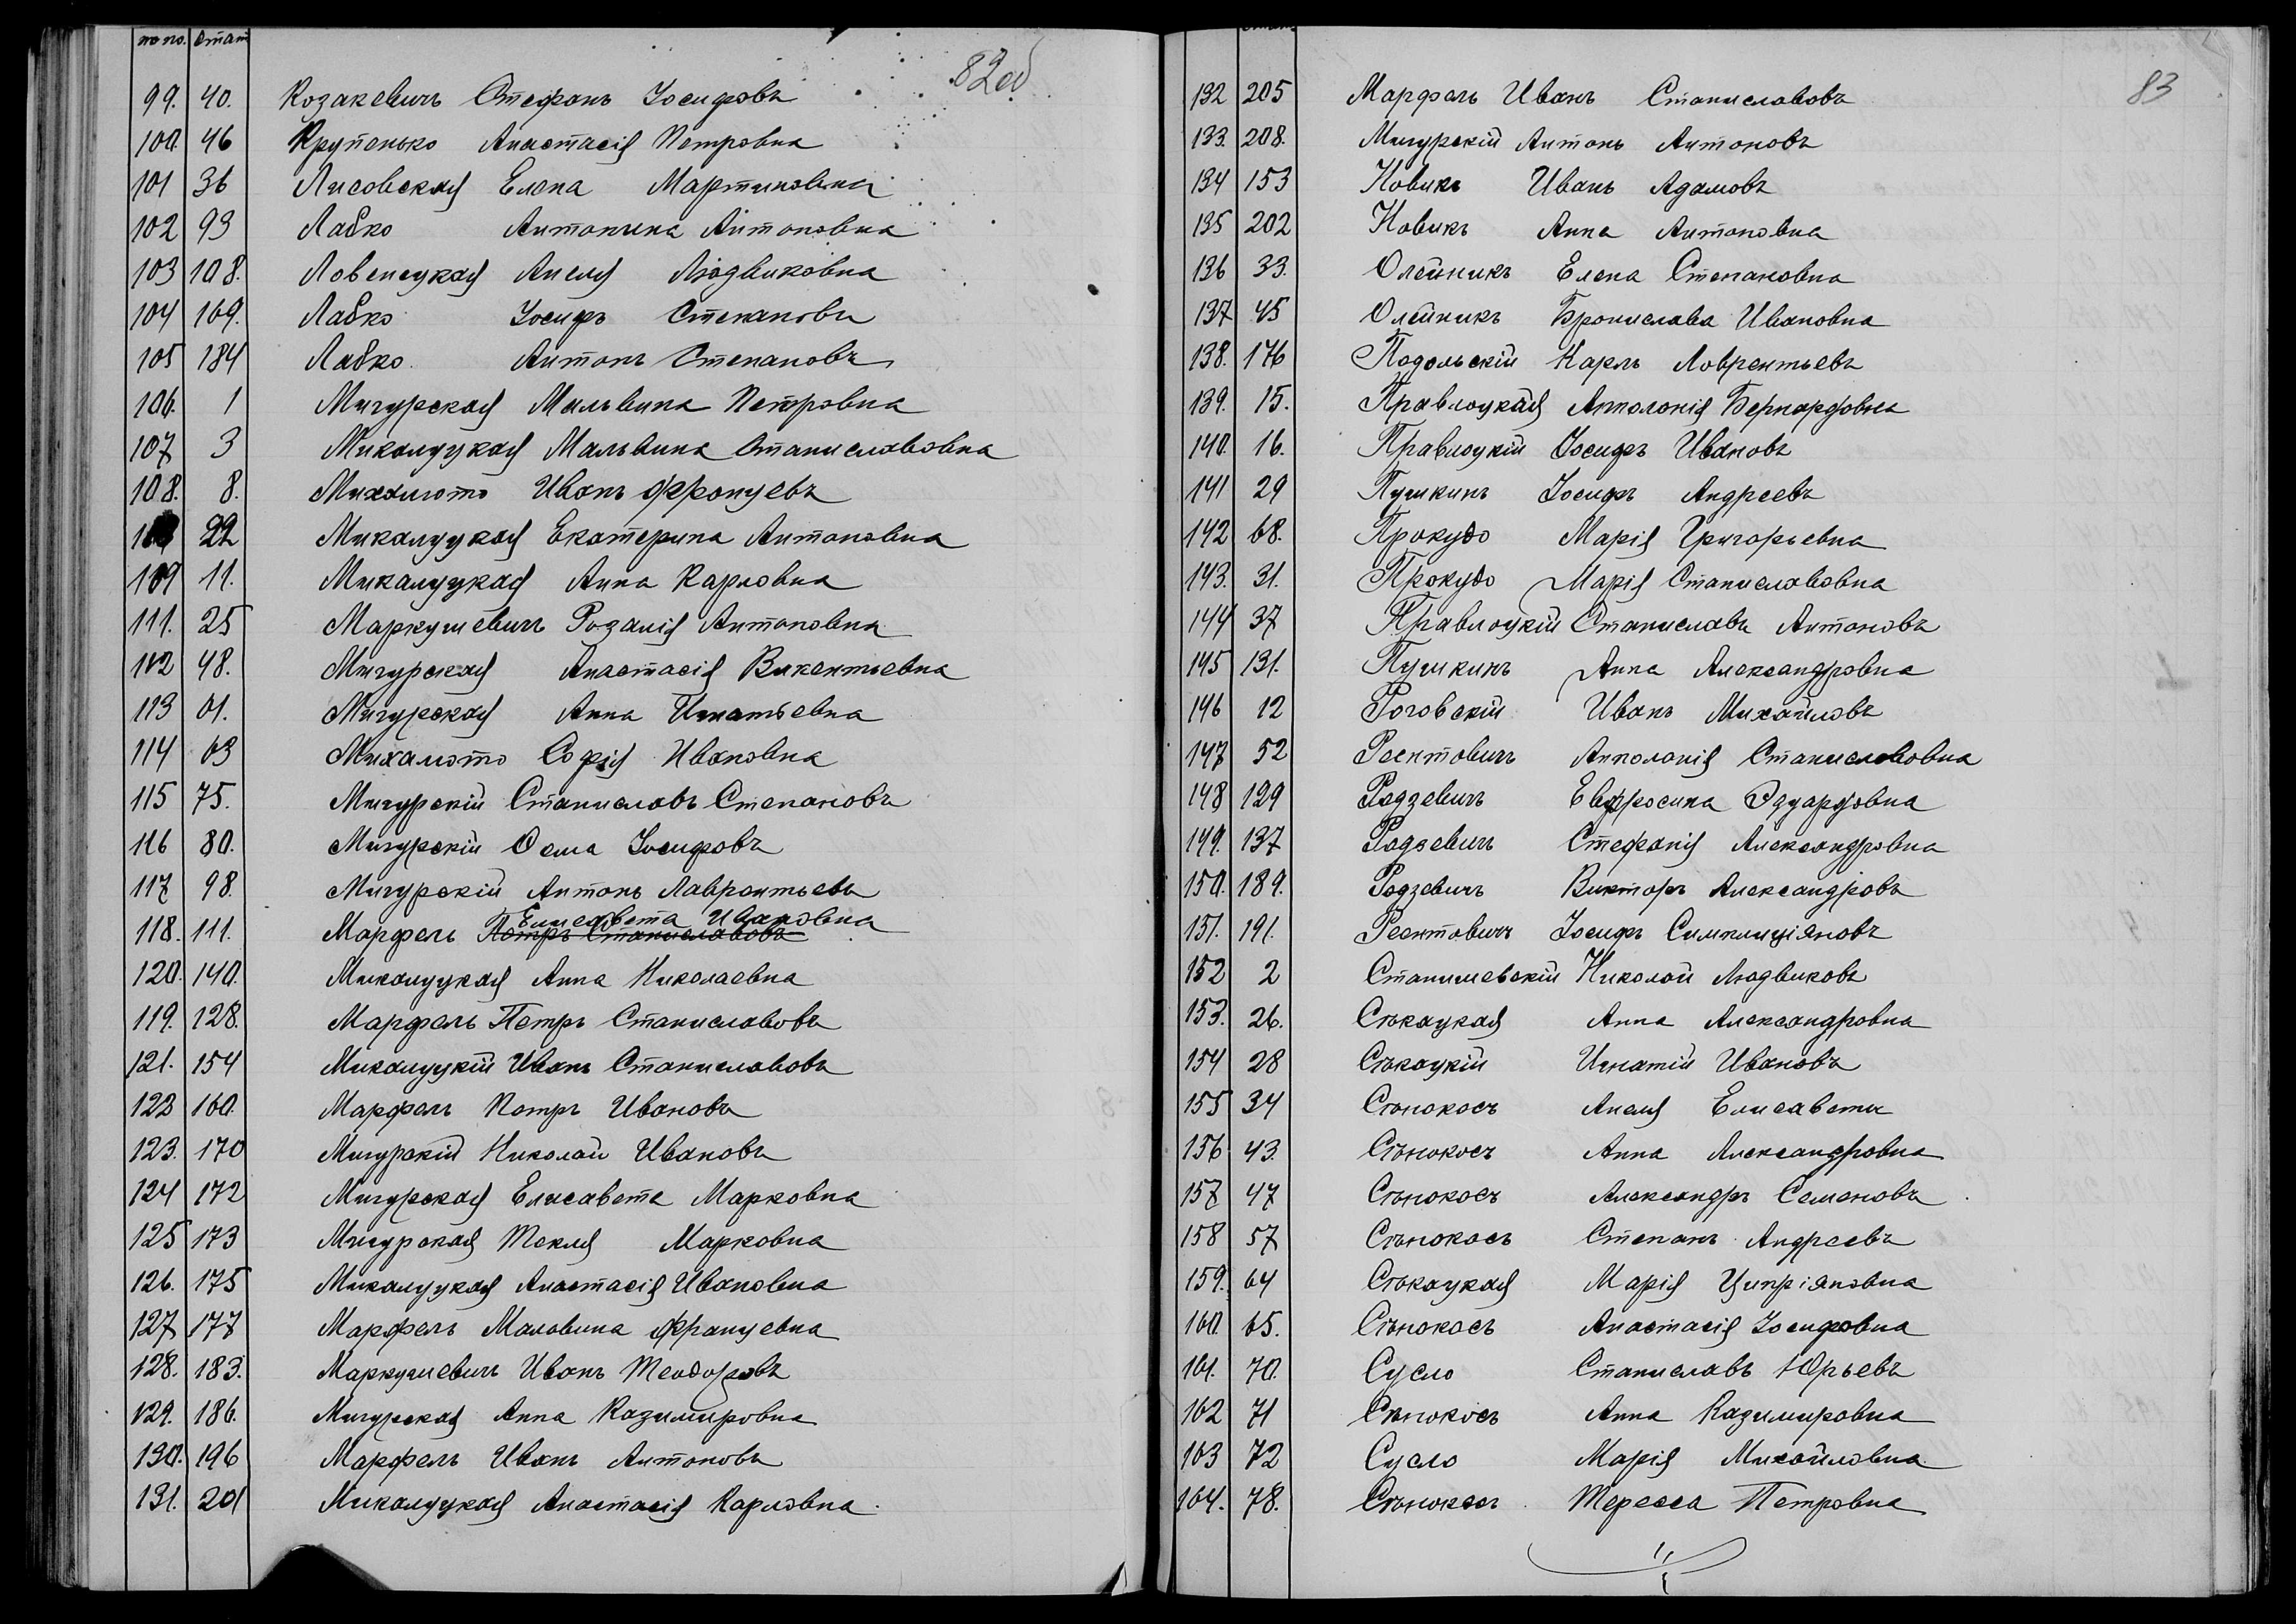 по по. Стат
82 об
99. 40. Козакевичъ Стефанъ Іосифовъ
100. 46 Крупенько Анастасія Петровна
101 36 Лисовская Елена Мартиновна
102 93 Лабко Антонина Антоновна
103 108. Ловенецкая Анеля Людвиковна
104 169. Лабко Іосифъ Степановъ
105 184 Лабко Антонъ Степановъ
106. 1 Мигурская Мальвина Петровна
107 3 Микалуцкая Мальвина Станиславовна
108. 8. Михалюто Иванъ Францевъ
22 Микалуцкая Екатерина Антоновна
109 11. Микалуцкая Анна Карловна
111. 25 Маркушевичъ Розалія Антоновна
112 48. Мигурская Анастасія Викентьевна
113 61. Мигурская Анна Игнатьевна
114 63 Михалюто Софія Ивановна
115 75. Мигурскій Станиславъ Степановъ
116 80. Мигурскій Осипа Іосифовъ
117 98. Мигурскій Антонъ Лаврентьевъ
Елисавета Ивановна
118. 111. Марфель Петръ Станиславовъ
120. 140. Микалуцкая Анна Николаевна
119. 128. Марфель Петръ Станиславовъ
121. 154 Микалуцкій Иванъ Станиславовъ
122 160. Марфель Петръ Ивановъ
123. 170 Мигурскій Николай Ивановъ
124 172 Мигурская Елисавета Марковна
125 173 Мигурская Текля Марковна
126. 175 Микалуцкая Анастасія Ивановна
127 177 Марфель Маловина Францевна
128. 183. Маркушевичъ Иванъ Теодоровъ
129. 186. Мигурская Анна Казимировна
130. 196 Марфель Иванъ Антоновъ
131. 201 Микалуцкая Анастасія Карловна
83
132 205 Марфель Иванъ Станиславовъ
133. 208. Мигурскій Антонъ Антоновъ
134 153 Новикъ Иванъ Адамовъ
135 202 Новикъ Анна Антоновна
136 33. Олейникъ Елена Степановна
137 45 Олейникъ Бронислава Ивановна
138. 176 Подольскій Карлъ Лаврентьевъ
139. 15. Правлоцкая Апполонія Бернардовна
140. 16. Правлоцкій Іосифъ Ивановъ
141 29 Пушкинъ Іосифъ Андреевъ
142 68. Прокудо Марія Григорьевна
143. 31. Прокудо Марія Станиславовна
144 37 Правлоцкій Станиславъ Антоновъ
145 131. Пушкинъ Анна Александровна
146 12 Роговскій Иванъ Михайловъ
147 52 Реентовичъ Апполонія Станиславовна
148 129 Радзевичъ Евфросина Эдуардовна
149. 137 Радзевичъ Стефанія Александровна
150. 189. Радзевичъ Викторъ Александровъ
151. 191. Реентовичъ Іосифъ Симплиціяновъ
152 2 Станишевскій Николай Людвиковъ
153. 26. Сѣкацкая Анна Александровна
154 28 Сѣкацкій Игнатій Ивановъ
155 34 Сѣнокосъ Анеля Елисаветы
156 43. Сѣнокосъ Анна Александровна
157 47 Сѣнокосъ Александръ Семеновъ
158 57 Сѣнокосъ Степанъ Андреевъ
159. 64 Сѣкацкая Марія Ципріяновна
160. 65. Сѣнокосъ Анастасія Іосифовна
161. 70. Сусло Станиславъ Юрьевъ
162 71 Сѣнокосъ Анна Казимировна
163 72 Сусло Марія Михайловна
164. 78. Сѣнокосъ Тересса Петровна